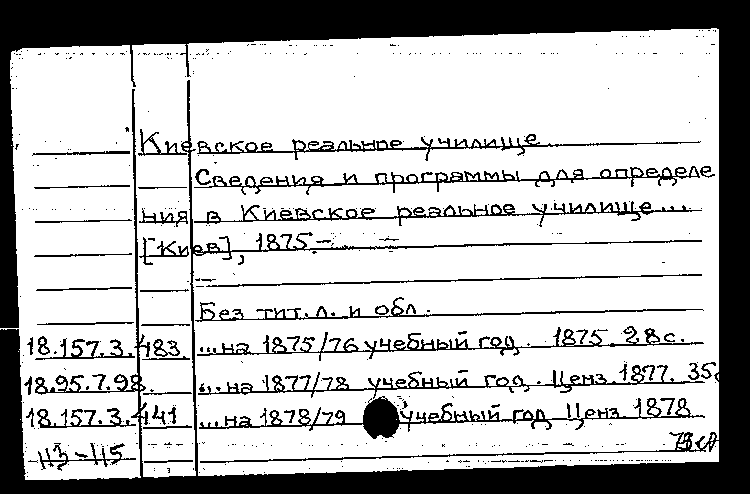 Киевское реальное училище
Сведения и программы для определе
ния в Киевское реальное училище...
[Киев], 1875.-
Без тит. л. и обл.
18.157.3.483. ...на 1875/76 учебный год. 1875. 28 с.
18.95.7.98. ...на 1877/78 учебный год. Ценз. 1877. 35
18.157.3.441 ...на 1878/79 учебный год Ценз 1878
113-115